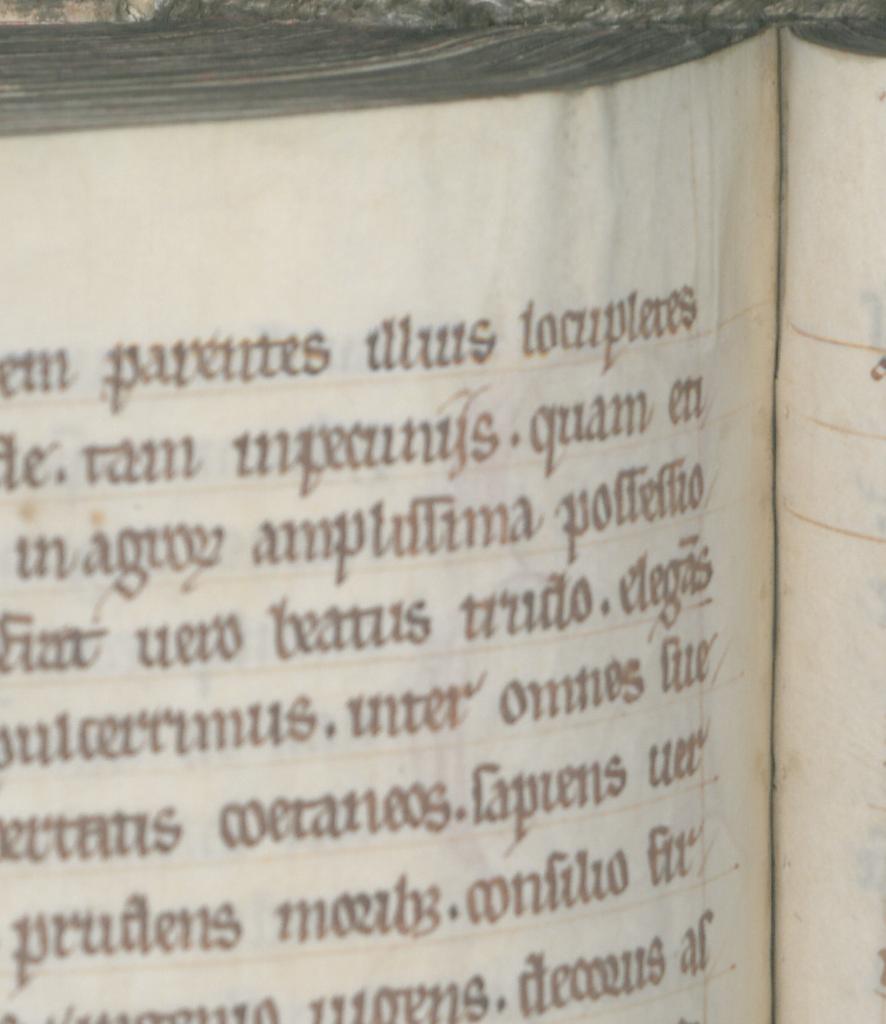 em parentes illius locupletes
de. tam inpecunijs. quam en
in agroꝝ amplissima possessio
Erat uero beatus trudo. elegās
pulcerrimus. inter omnes sue
ertatis coetaneos. sapiens uer
prudens moribꝫ. consilio fir
ingenio ingens. decorus as